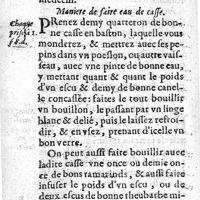 medecin.
Maniere de faire eau de casse.
PRenez demy quatteron de bon-
ne casse en baston, laquelle vous
monderez, & mettrez auec ses pe-
pins dans vn poeslon, ou autre vais-
seau, auec vne pinte de bonne eau,
y mettant quant & quant le poids
d'vn escu & demy de bonne canel-
le concassée: faites le tout bouillir
vn bouillon, le passant par vn linge
blanc & delié, puis le laissez refroi-
dir, & en vsez, prenant d'icelle vn
bon verre.
On peut aussi faire bouillir auec
ladite casse vne once ou demie on-
ce de bons tamarinds, & aussi faire
infuser le poids d'vn escu, ou de
deux escus de bonne rheubarbe mi-